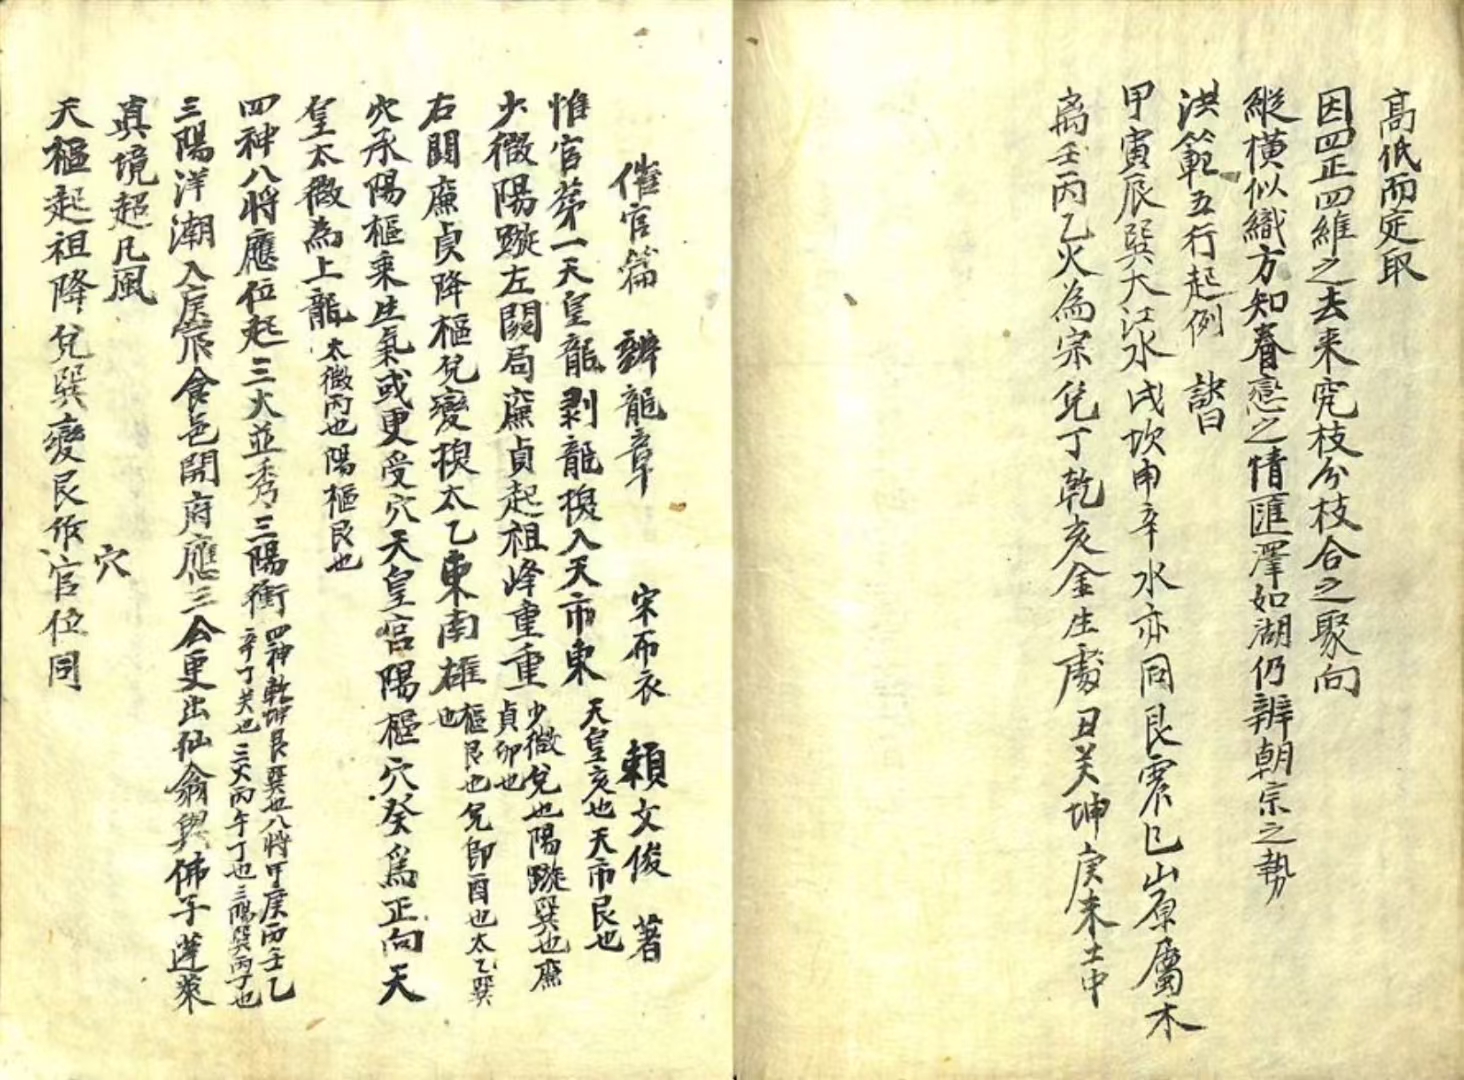 高低而定取
因四正四維之去来究枝分枝合之聚向
縱橫似織方知眷恋之情匯澤如湖仍辨朝宗之勢
洪範五行起例 訣曰
甲寅辰巽大江水戌坎申辛水亦同艮震巳山原屬木
离壬丙乙火為宗兌丁乾亥金生處丑癸坤庚未土中
催官篇 辨龍章 宋布衣 賴文俊 著
惟官苐一天皇龍剥龍換入天市東天皇亥也天市艮也
少微陽璇左闗局廉貞起祖峰重重少微兌也陽璇巽也廉貞卯也
右闗廉貞降樞兌變換太乙東南雄樞艮也兌卽酉也太乙巽也
穴承陽樞乘生氣或更受穴天皇宫陽樞穴癸為正向天
皇太微為上龍太微丙也陽樞艮也
四神八將應位起三火並秀三陽衝四神乾坤艮巽也八將甲庚丙壬乙辛丁癸也三火丙午丁也三陽巽丙丁也
三陽洋潮入庚食邑開府應三公更出仙翁與佛子蓬萊
眞境超凡風
穴
天樞起祖降兌巽變艮作官位同